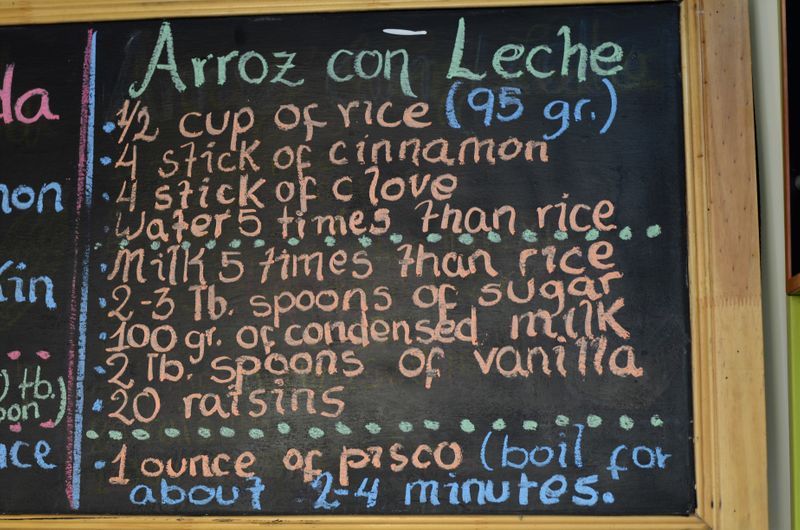 Arroz con Leche
• 1/2 cup of rice (95 gr.)
• 4 stick of cinnamon
• 4 stick of clove
• Water 5 times than rice
• Milk 5 times than rice
• 2-3 tb. spoons of sugar
• 100 gr. of condensed milk
• 2 tb. spoons of vanilla
• 20 raisins
• 1 ounce of pisco (boil for
about 2-4 minutes.
da
non
kin
) tb.
oon)
ice